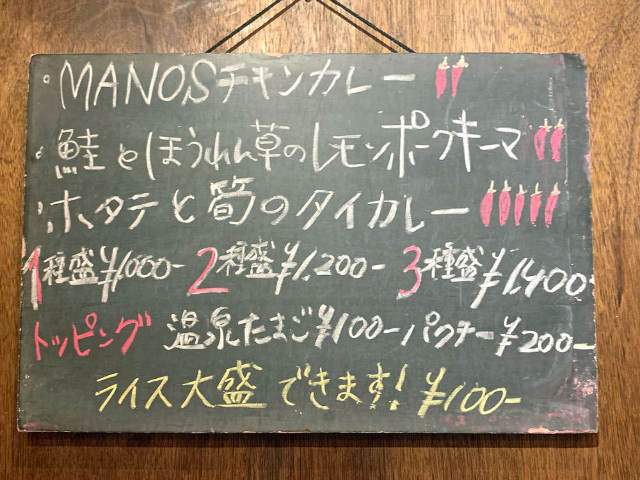 ・MANOSチキンカレー
・鮭とほうれん草のレモンポークキーマ
・ホタテと筍のタイカレー
1種盛¥1000- 2種盛¥1,200- 3種盛¥1,400-
トッピング 温泉たまご¥100- パクチー¥200-
ライス大盛できます!¥100-